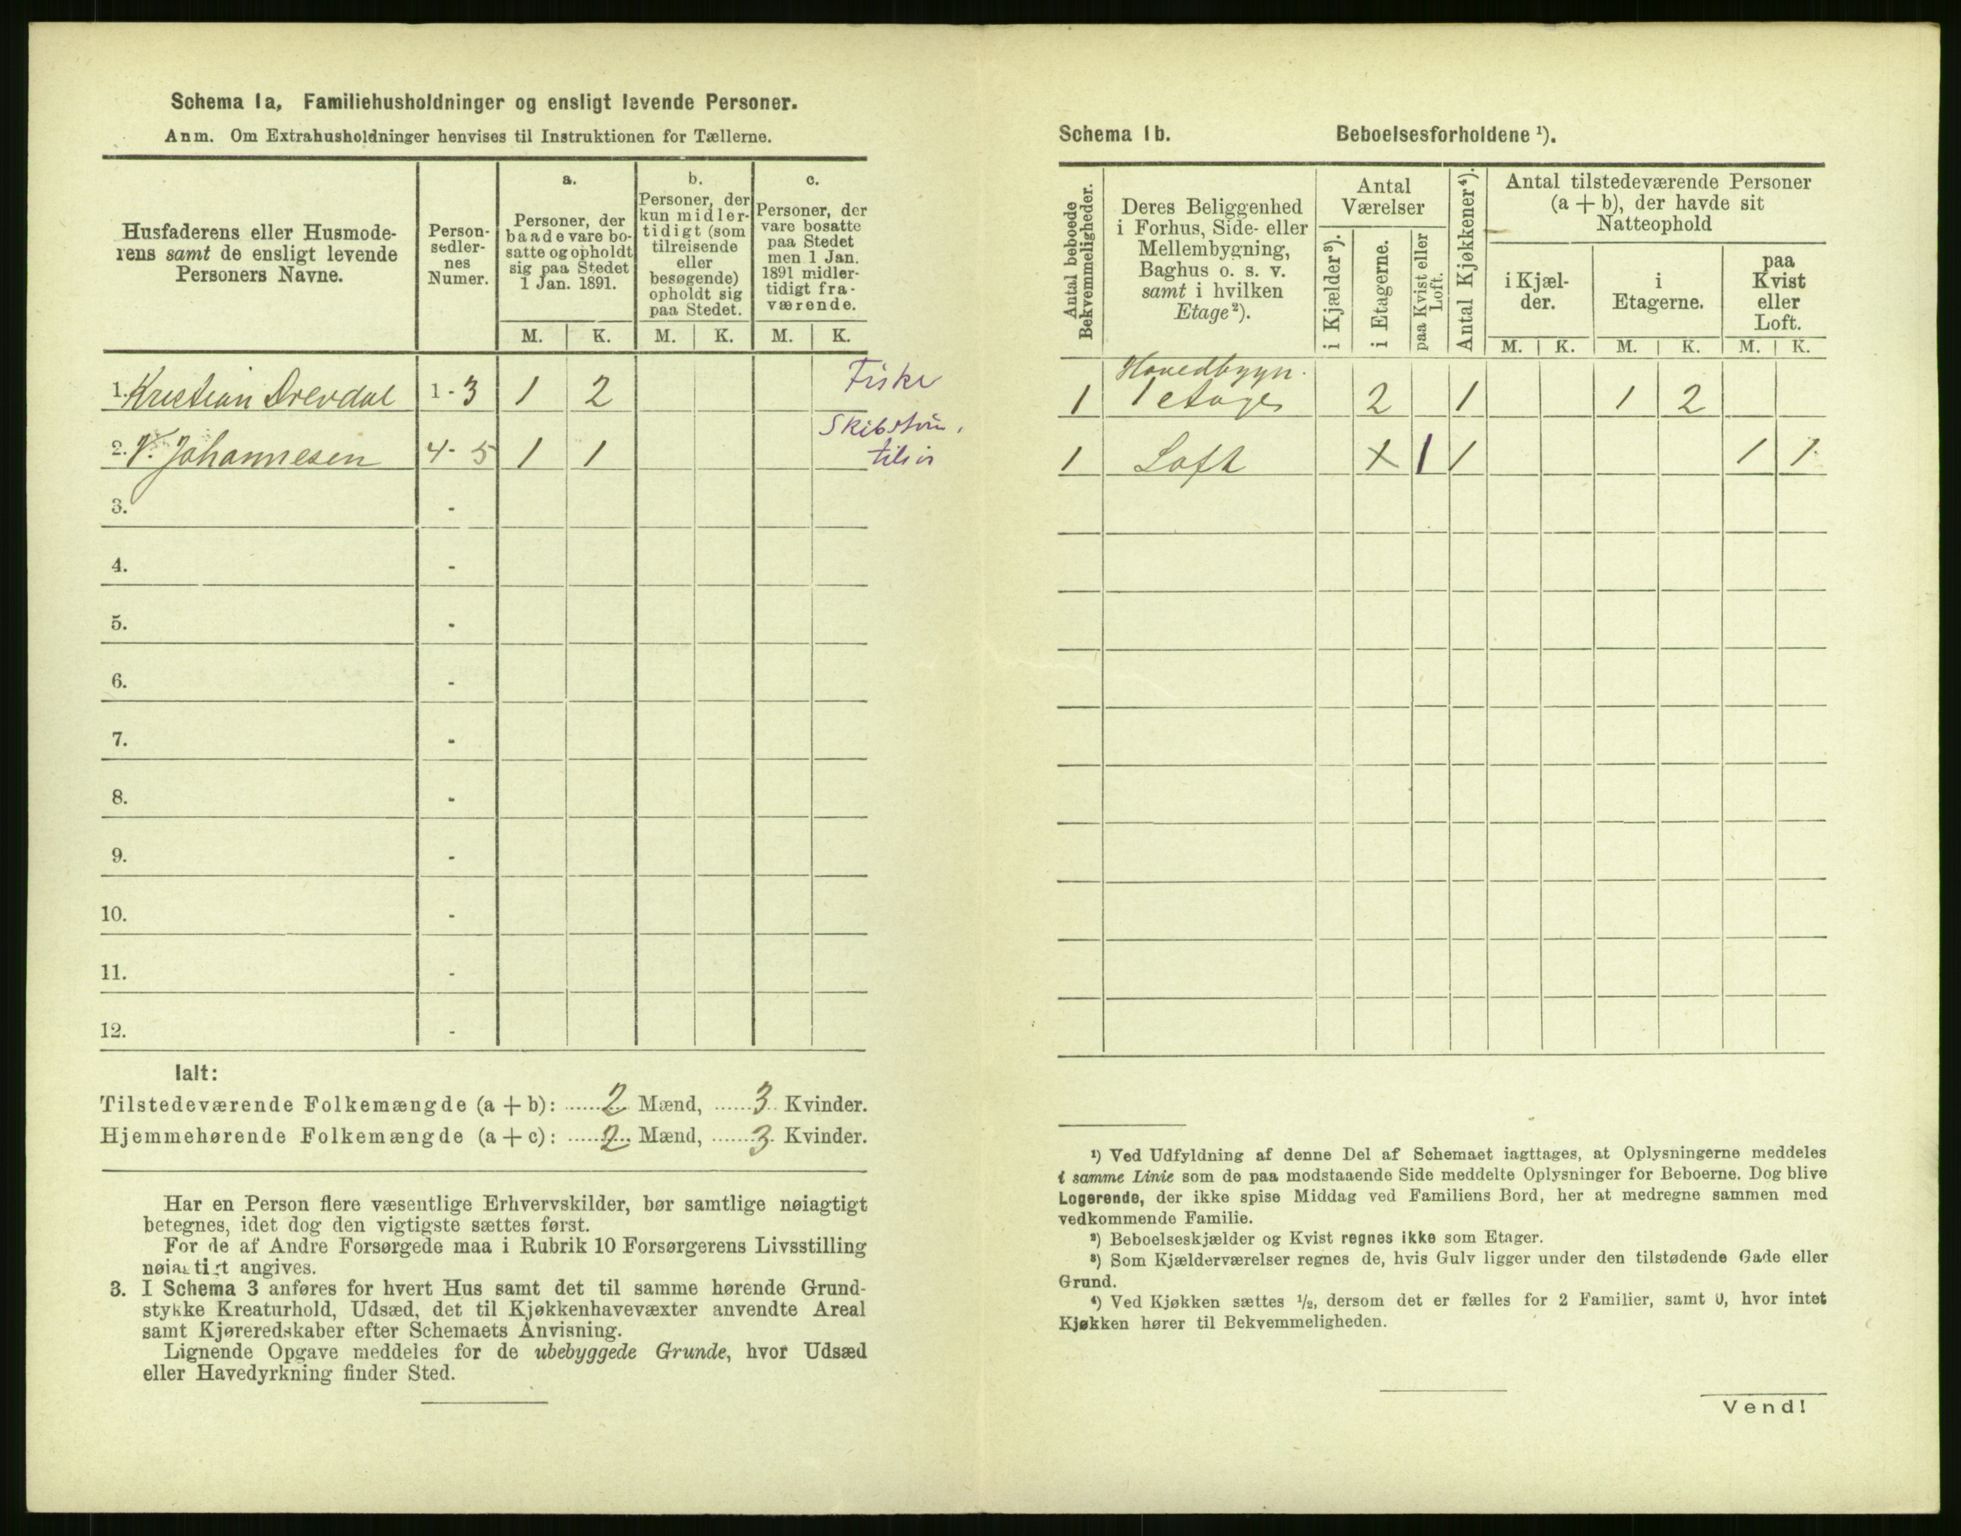 Schema 1a, Familiehusholdninger og ensligt levende Personer.
Anm. Om Extrahusholdninger henvises til Instruktionen for Tællerne.
Husfaderens eller Husmode-
rens samt de ensligt levende
Personers Navne.
Person-
sedler-
nes
Numer.
a.
Personer, der
baade vare bo-
satte og opholdt
sig paa Stedet
1 Jan. 1891.
b.
Personer, der
kun midler-
tidigt (som
tilreisende
eller
besøgende)
opholdt sig
paa Stedet.
c.
Personer, der
vare bosatte
paa Stedet
men 1 Jan.
1891 midler-
tidigt fra-
værende.
M. K. M. K. M. K.
1. Kristian Drevdal 1-3 1 2 Fisker
2. V. Johannesen 4-5 1 1
3. -
4. -
5. -
6. -
7. -
8. -
9. -
10. -
11. -
12. -
Ialt:
Tilstedeværende Folkemængde (a + b): 2 Mænd, 3 Kvinder.
Hjemmehørende Folkemængde (a + c): 2 Mænd, 3 Kvinder.
Har en Person flere væsentlige Erhvervskilder, bør samtlige nøiagtigt
betegnes, idet dog den vigtigste sættes først.
For de af Andre Forsørgede maa i Rubrik 10 Forsørgerens Livsstilling
nøiagtigt angives.
3. I Schema 3 anføres for hvert Hus samt det til samme hørende Grund-
stykke Kreaturhold, Udsæd, det til Kjøkkenhavevæxter anvendte Areal
samt Kjøreredskaber efter Schemaets Anvisning.
Lignende Opgave meddeles for de ubebyggede Grunde, hvor Udsæd
eller Havedyrkning finder Sted.
Schema 1b. Beboelsesforholdene ¹).
Antal beboede
Bekvemmeligheder.
Deres Beliggenhed
i Forhus, Side- eller
Mellembygning,
Baghus o. s. v.
samt i hvilken
Etage ²).
Antal
Værelser
i Kjælder ³).
i Etagerne.
paa Kvist eller
Loft.
Antal Kjøkkener ⁴).
Antal tilstedeværende Personer
(a + b), der havde sit
Natteophold
i Kjæl-
der.
i
Etagerne.
paa
Kvist
eller
Loft.
M. K. M. K. M. K.
Hovedbygn.
1 1 etages 2 1 1 2
1 Loft 1 1 1 1
¹) Ved Udfyldning af denne Del af Schemaet iagttages, at Oplysningerne meddeles
i samme Linie som de paa modstaaende Side meddelte Oplysninger for Beboerne. Dog blive
Logerende, der ikke spise Middag ved Familiens Bord, her at medregne sammen med
vedkommende Familie.
²) Beboelseskjælder og Kvist regnes ikke som Etager.
³) Som Kjælderværelser regnes de, hvis Gulv ligger under den tilstødende Gade eller
Grund.
⁴) Ved Kjøkken sættes ½, dersom det er fælles for 2 Familier, samt 0, hvor intet
Kjøkken hører til Bekvemmeligheden.
Vend!